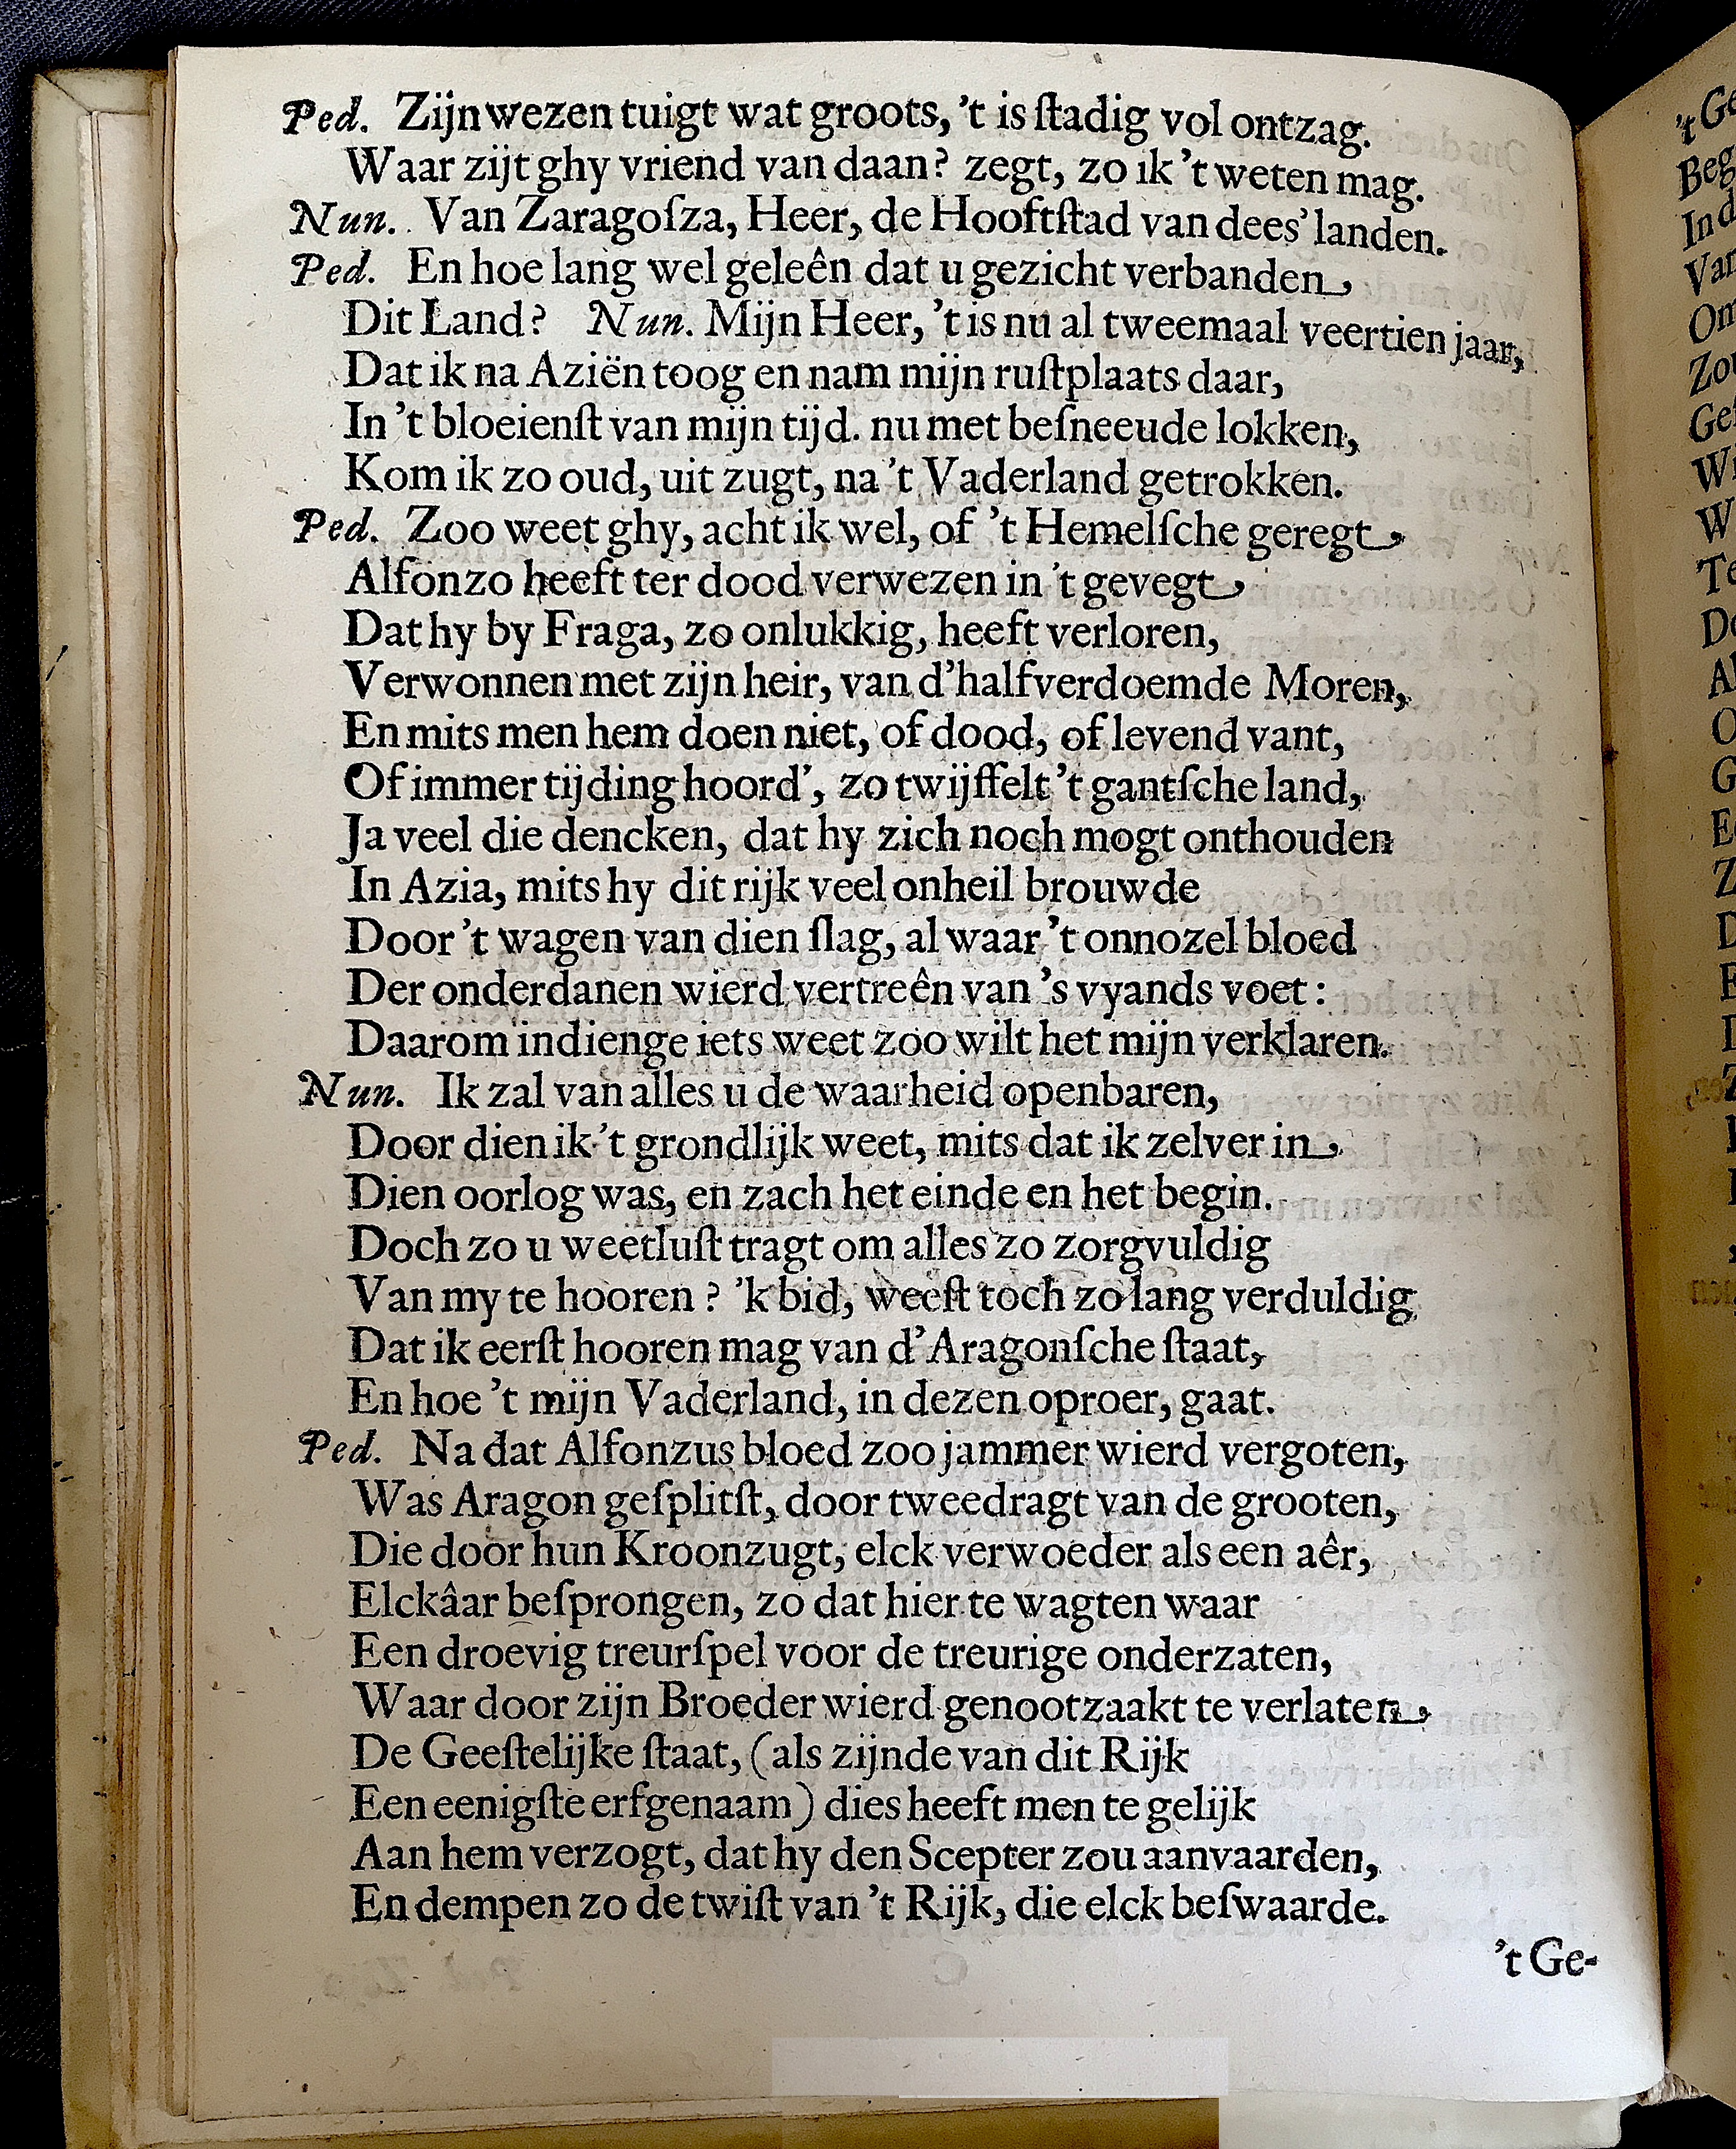 Ped. Zijn wezen tuigt wat groots, 't is ſtadig vol ontzag.
Waar zijt ghy vriend van daan? zegt, zo ik 't weten mag.
Nun. Van Zaragoſza, Heer, de Hooftſtad van dees' landen.
Ped. En hoe lang wel geleên dat u gezicht verbanden
Dit Land? Nun. Mijn Heer, 't is nu al tweemaal veertien jaar,
Dat ik na Aziën toog en nam mijn ruſtplaats daar,
In 't bloeienſt van mijn tijd. nu met beſneeude lokken,
Kom ik zo oud, uit zugt, na 't Vaderland getrokken.
Ped. Zoo weet ghy, acht ik wel, of 't Hemelſche geregt
Alfonzo heeft ter dood verwezen in 't gevegt
Dat hy by Fraga, zo onlukkig, heeft verloren,
Verwonnen met zijn heir, van d'halfverdoemde Moren,
En mits men hem doen niet, of dood, of levend vant,
Of immer tijding hoord', zo twijffelt 't gantſche land,
Ja veel die dencken, dat hy zich noch mogt onthouden
In Azia, mits hy dit rijk veel onheil brouwde
Door 't wagen van dien ſlag, al waar 't onnozel bloed
Der onderdanen wierd vertreên van 's vyands voet:
Daarom indienge iets weet zoo wilt het mijn verklaren.
Nun. Ik zal van alles u de waarheid openbaren,
Door dien ik 't grondlijk weet, mits dat ik zelver in
Dien oorlog was, en zach het einde en het begin.
Doch zo u weetluſt tragt om alles zo zorgvuldig
Van my te hooren? 'k bid, weeſt toch zo lang verduldig
Dat ik eerſt hooren mag van d'Aragonſche ſtaat,
En hoe 't mijn Vaderland, in dezen oproer, gaat.
Ped. Na dat Alfonzus bloed zoo jammer wierd vergoten,
Was Aragon geſplitſt, door tweedragt van de grooten,
Die door hun Kroonzugt, elck verwoeder als een aêr,
Elckâar beſprongen, zo dat hier te wagten waar
Een droevig treurſpel voor de treurige onderzaten,
Waar door zijn Broeder wierd genootzaakt te verlaten
De Geeſtelijke ſtaat, (als zijnde van dit Rijk
Een eenigſte erfgenaam) dies heeft men te gelijk
Aan hem verzogt, dat hy den Scepter zou aanvaarden,
En dempen zo de twiſt van 't Rijk, die elck beſwaarde.
't Ge-